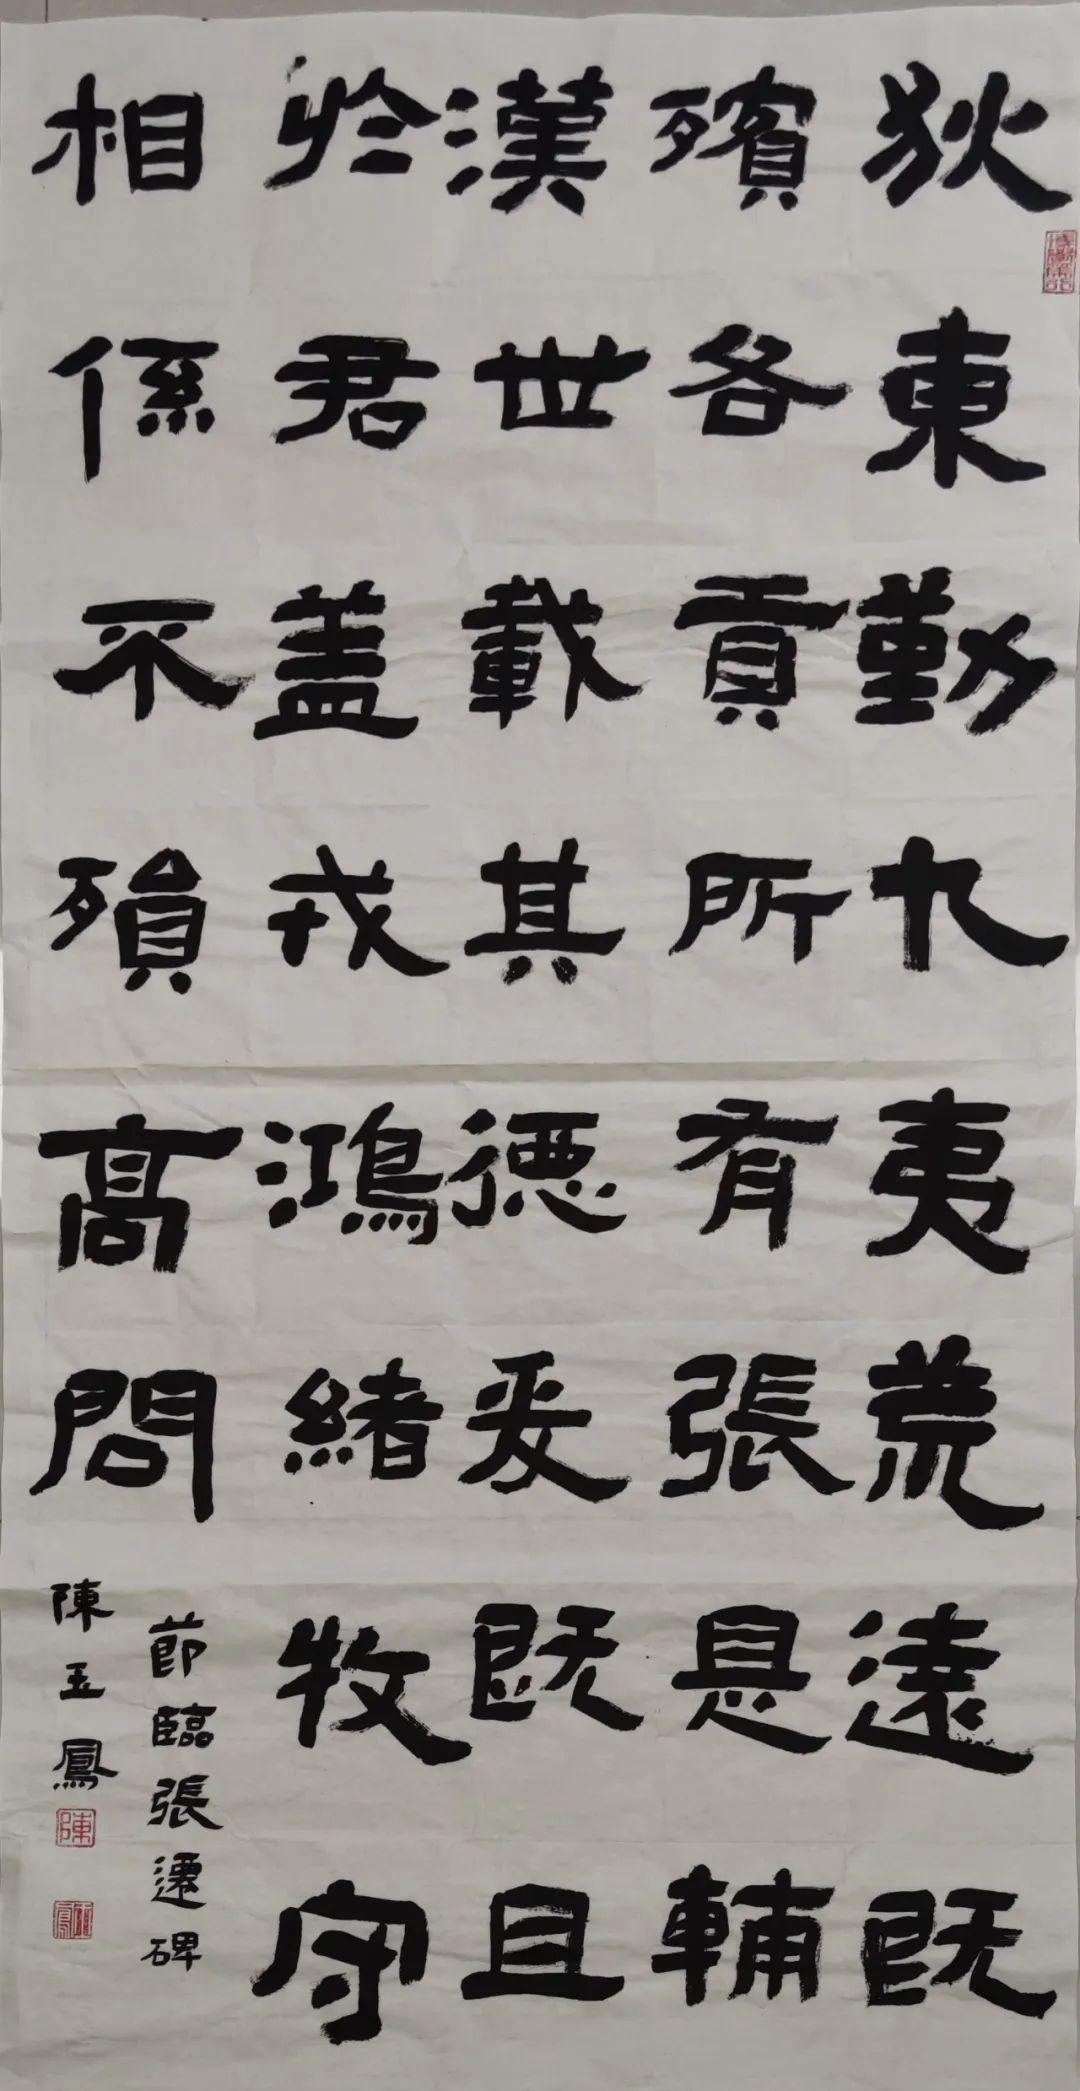 狄東勤九夷荒遠既
殯各貢所有張是輔
漢世載其德爰既且
於君盖戎鴻緒牧守
相係不殞高問
節臨張遷碑
陳玉鳳
陳